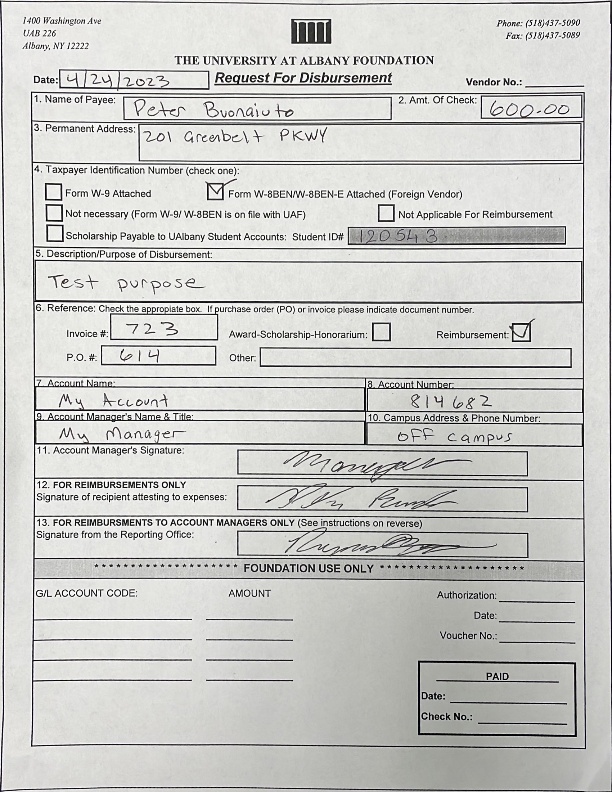 1400 Washington Ave
UAB 226
Albany, NY 12222
Phone: (518)437-5090
Fax: (518)437-5089
THE UNIVERSITY AT ALBANY FOUNDATION
Date: 4/24/2023 Request For Disbursement Vendor No.:
1. Name of Payee: Peter Buonaiuto 2. Amt. Of Check: 600.00
3. Permanent Address: 201 Greenbelt PKWY
4. Taxpayer Identification Number (check one):
Form W-9 Attached Form W-8BEN/W-8BEN-E Attached (Foreign Vendor)
Not necessary (Form W-9/ W-8BEN is on file with UAF) Not Applicable For Reimbursement
Scholarship Payable to UAlbany Student Accounts: Student ID# 120543
5. Description/Purpose of Disbursement:
Test purpose
6. Reference: Check the appropiate box. If purchase order (PO) or invoice please indicate document number.
Invoice #: 723 Award-Scholarship-Honorarium: Reimbursement:
P.O. #: 614 Other:
7. Account Name: 8. Account Number:
My Account 814682
9. Account Manager's Name & Title: 10. Campus Address & Phone Number:
My Manager OFF campus
11. Account Manager's Signature:
12. FOR REIMBURSEMENTS ONLY
Signature of recipient attesting to expenses:
13. FOR REIMBURSMENTS TO ACCOUNT MANAGERS ONLY (See instructions on reverse)
Signature from the Reporting Office:
* * * * * * * * * * * * * * * * * * * FOUNDATION USE ONLY * * * * * * * * * * * * * * * * * * *
G/L ACCOUNT CODE: AMOUNT Authorization:
Date:
Voucher No.:
PAID
Date:
Check No.: